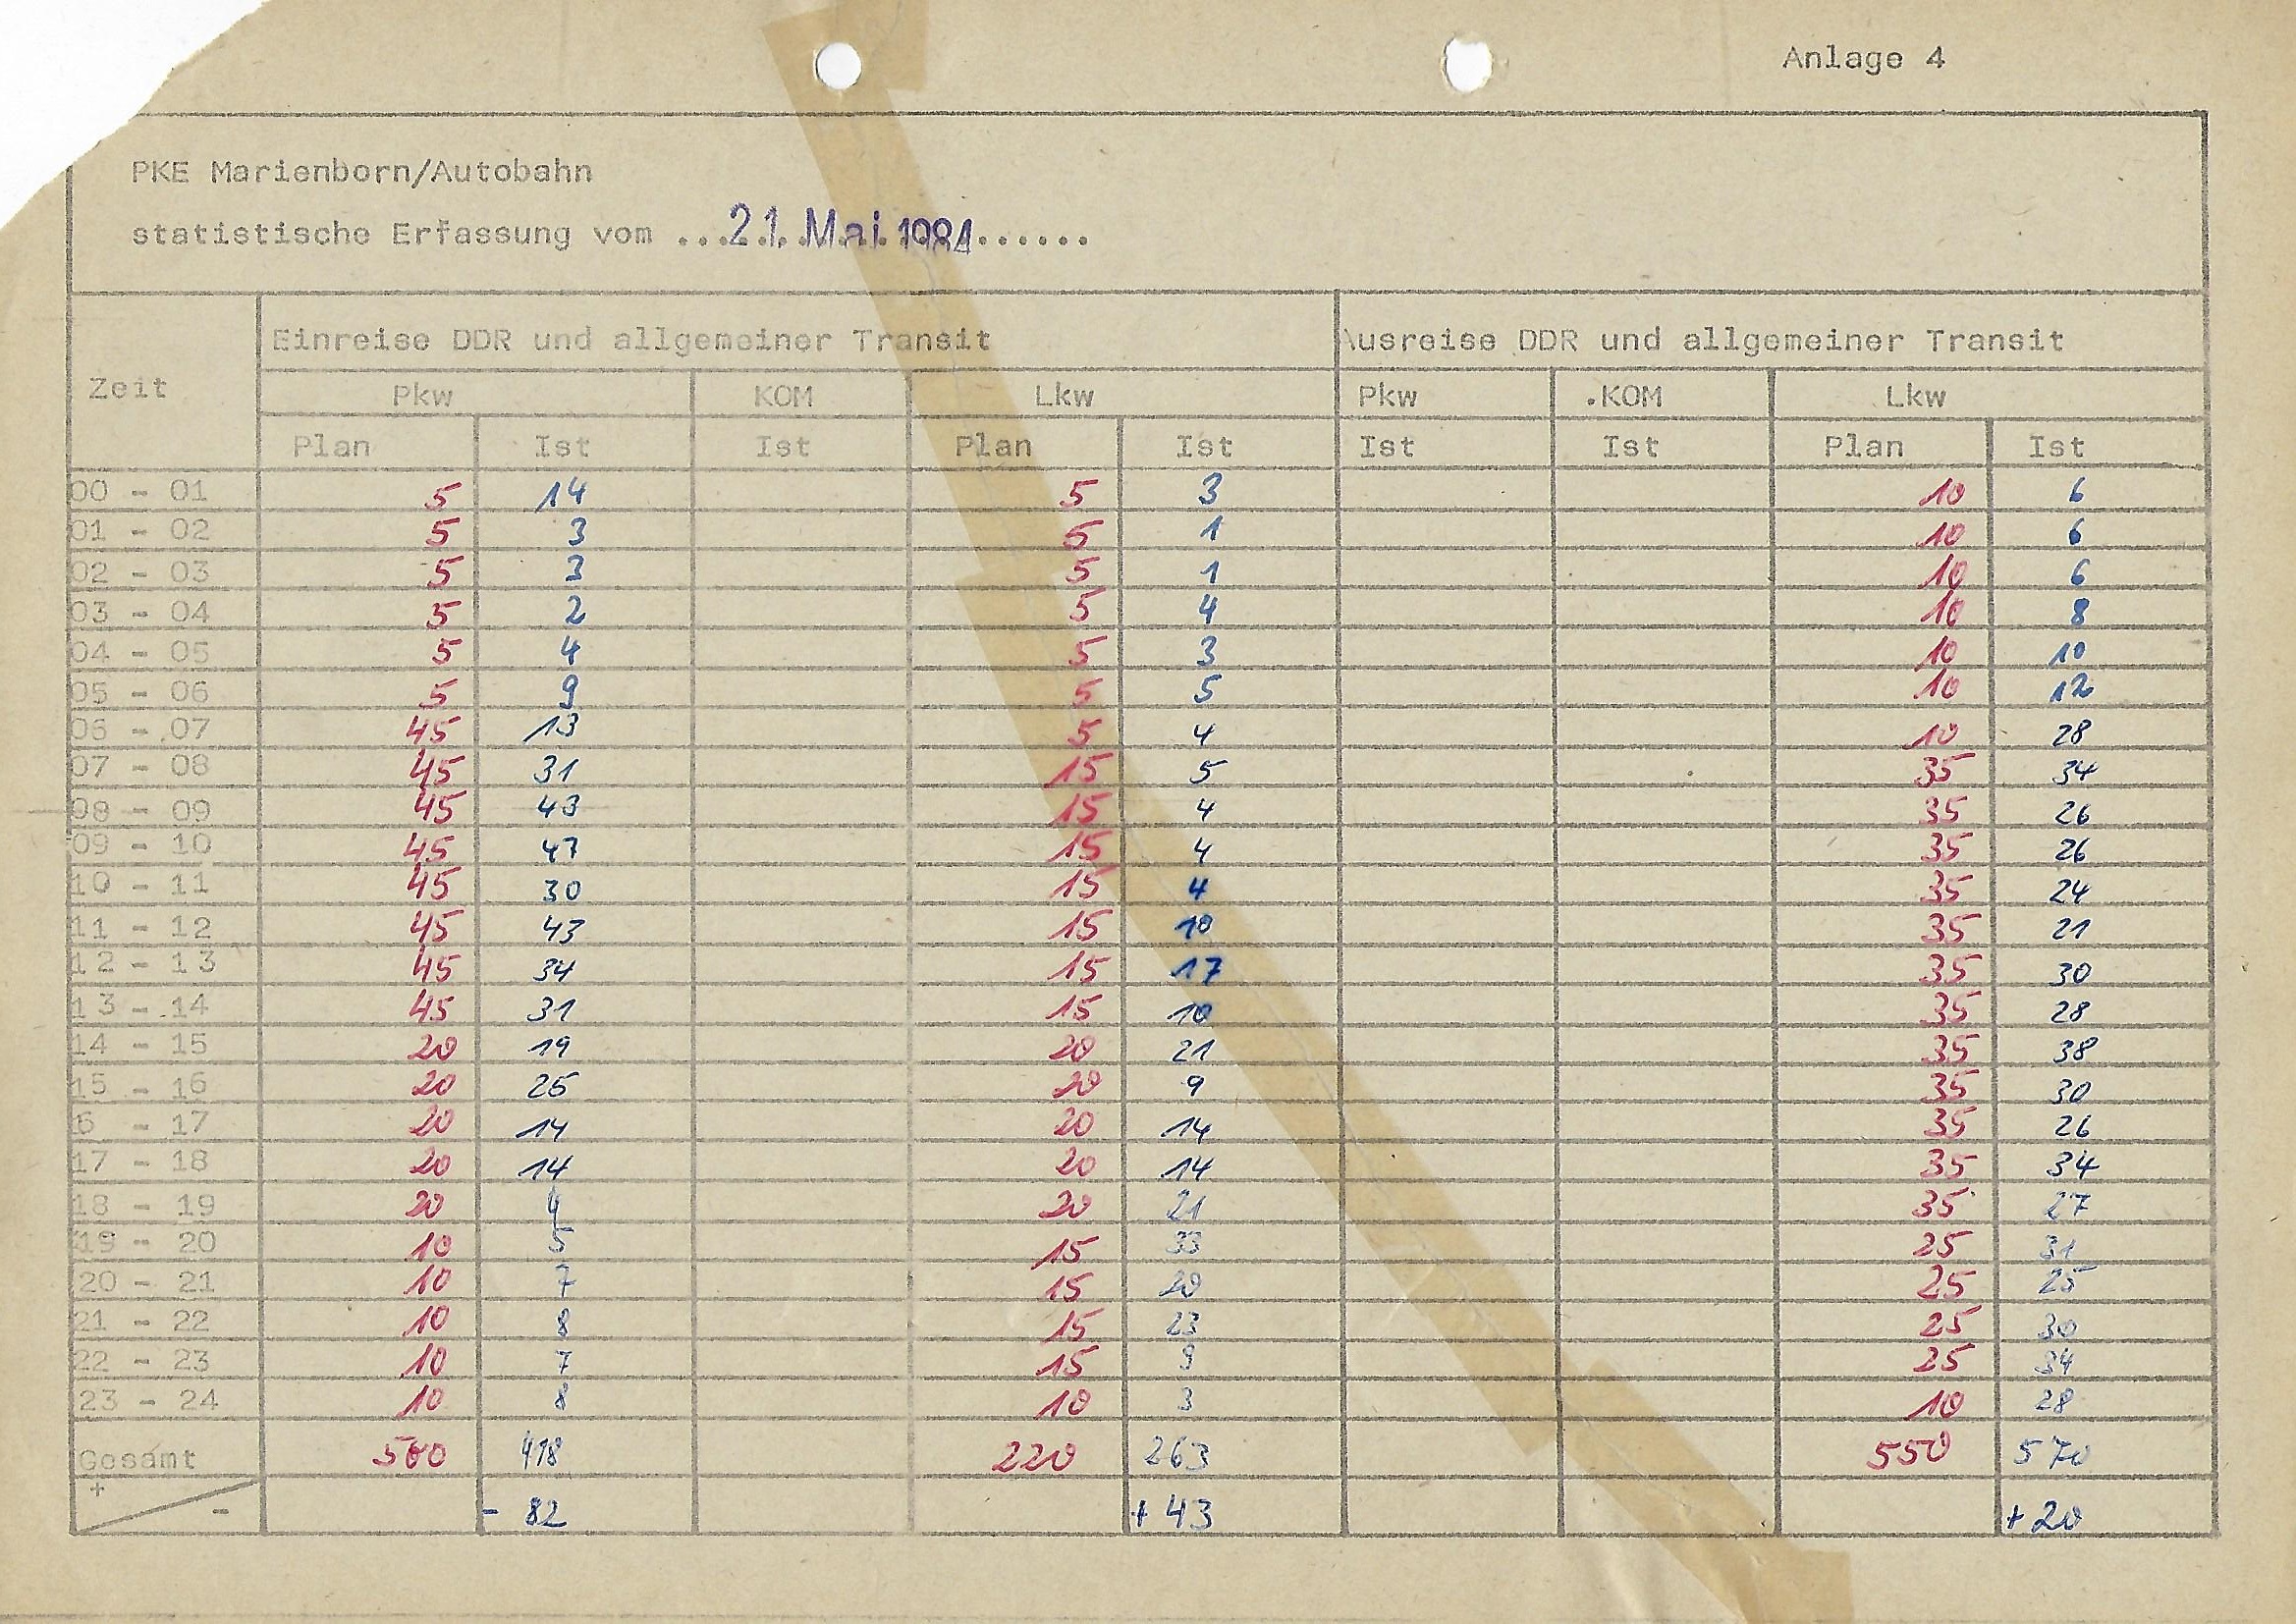 Anlage 4
PKE Marienborn/Autobahn
statistische Erfassung vom ...21. Mai 1984......
Zeit Einreise DDR und allgemeiner Transit Ausreise DDR und allgemeiner Transit
Pkw KOM Lkw Pkw .KOM Lkw
Plan Ist Ist Plan Ist Ist Ist Plan Ist
00 - 01 5 14 5 3 10 6
01 - 02 5 3 5 1 10 6
02 - 03 5 3 5 1 10 6
03 - 04 5 2 5 4 10 8
04 - 05 5 4 5 3 10 10
05 - 06 5 9 5 5 10 12
06 - 07 45 13 5 4 10 28
07 - 08 45 31 15 5 35 34
08 - 09 45 43 15 4 35 26
09 - 10 45 47 15 4 35 26
10 - 11 45 30 15 4 35 24
11 - 12 45 43 15 35 21
12 - 13 45 34 15 17 35 30
13 - 14 45 31 15 10 35 28
14 - 15 20 19 20 21 35 38
15 - 16 20 20 9 35 30
6 - 17 20 14 20 14 35 26
17 - 18 20 14 20 14 35 34
18 - 19 20 4 20 21 35 27
19 - 20 10 5 15 33 25 31
20 - 21 10 7 15 20 25 25
21 - 22 10 8 15 23 25 30
22 - 23 10 7 15 9 25 34
23 - 24 10 8 10 3 10 28
Gesamt 500 418 220 263 550 570
+ - - 82 + 43 + 20